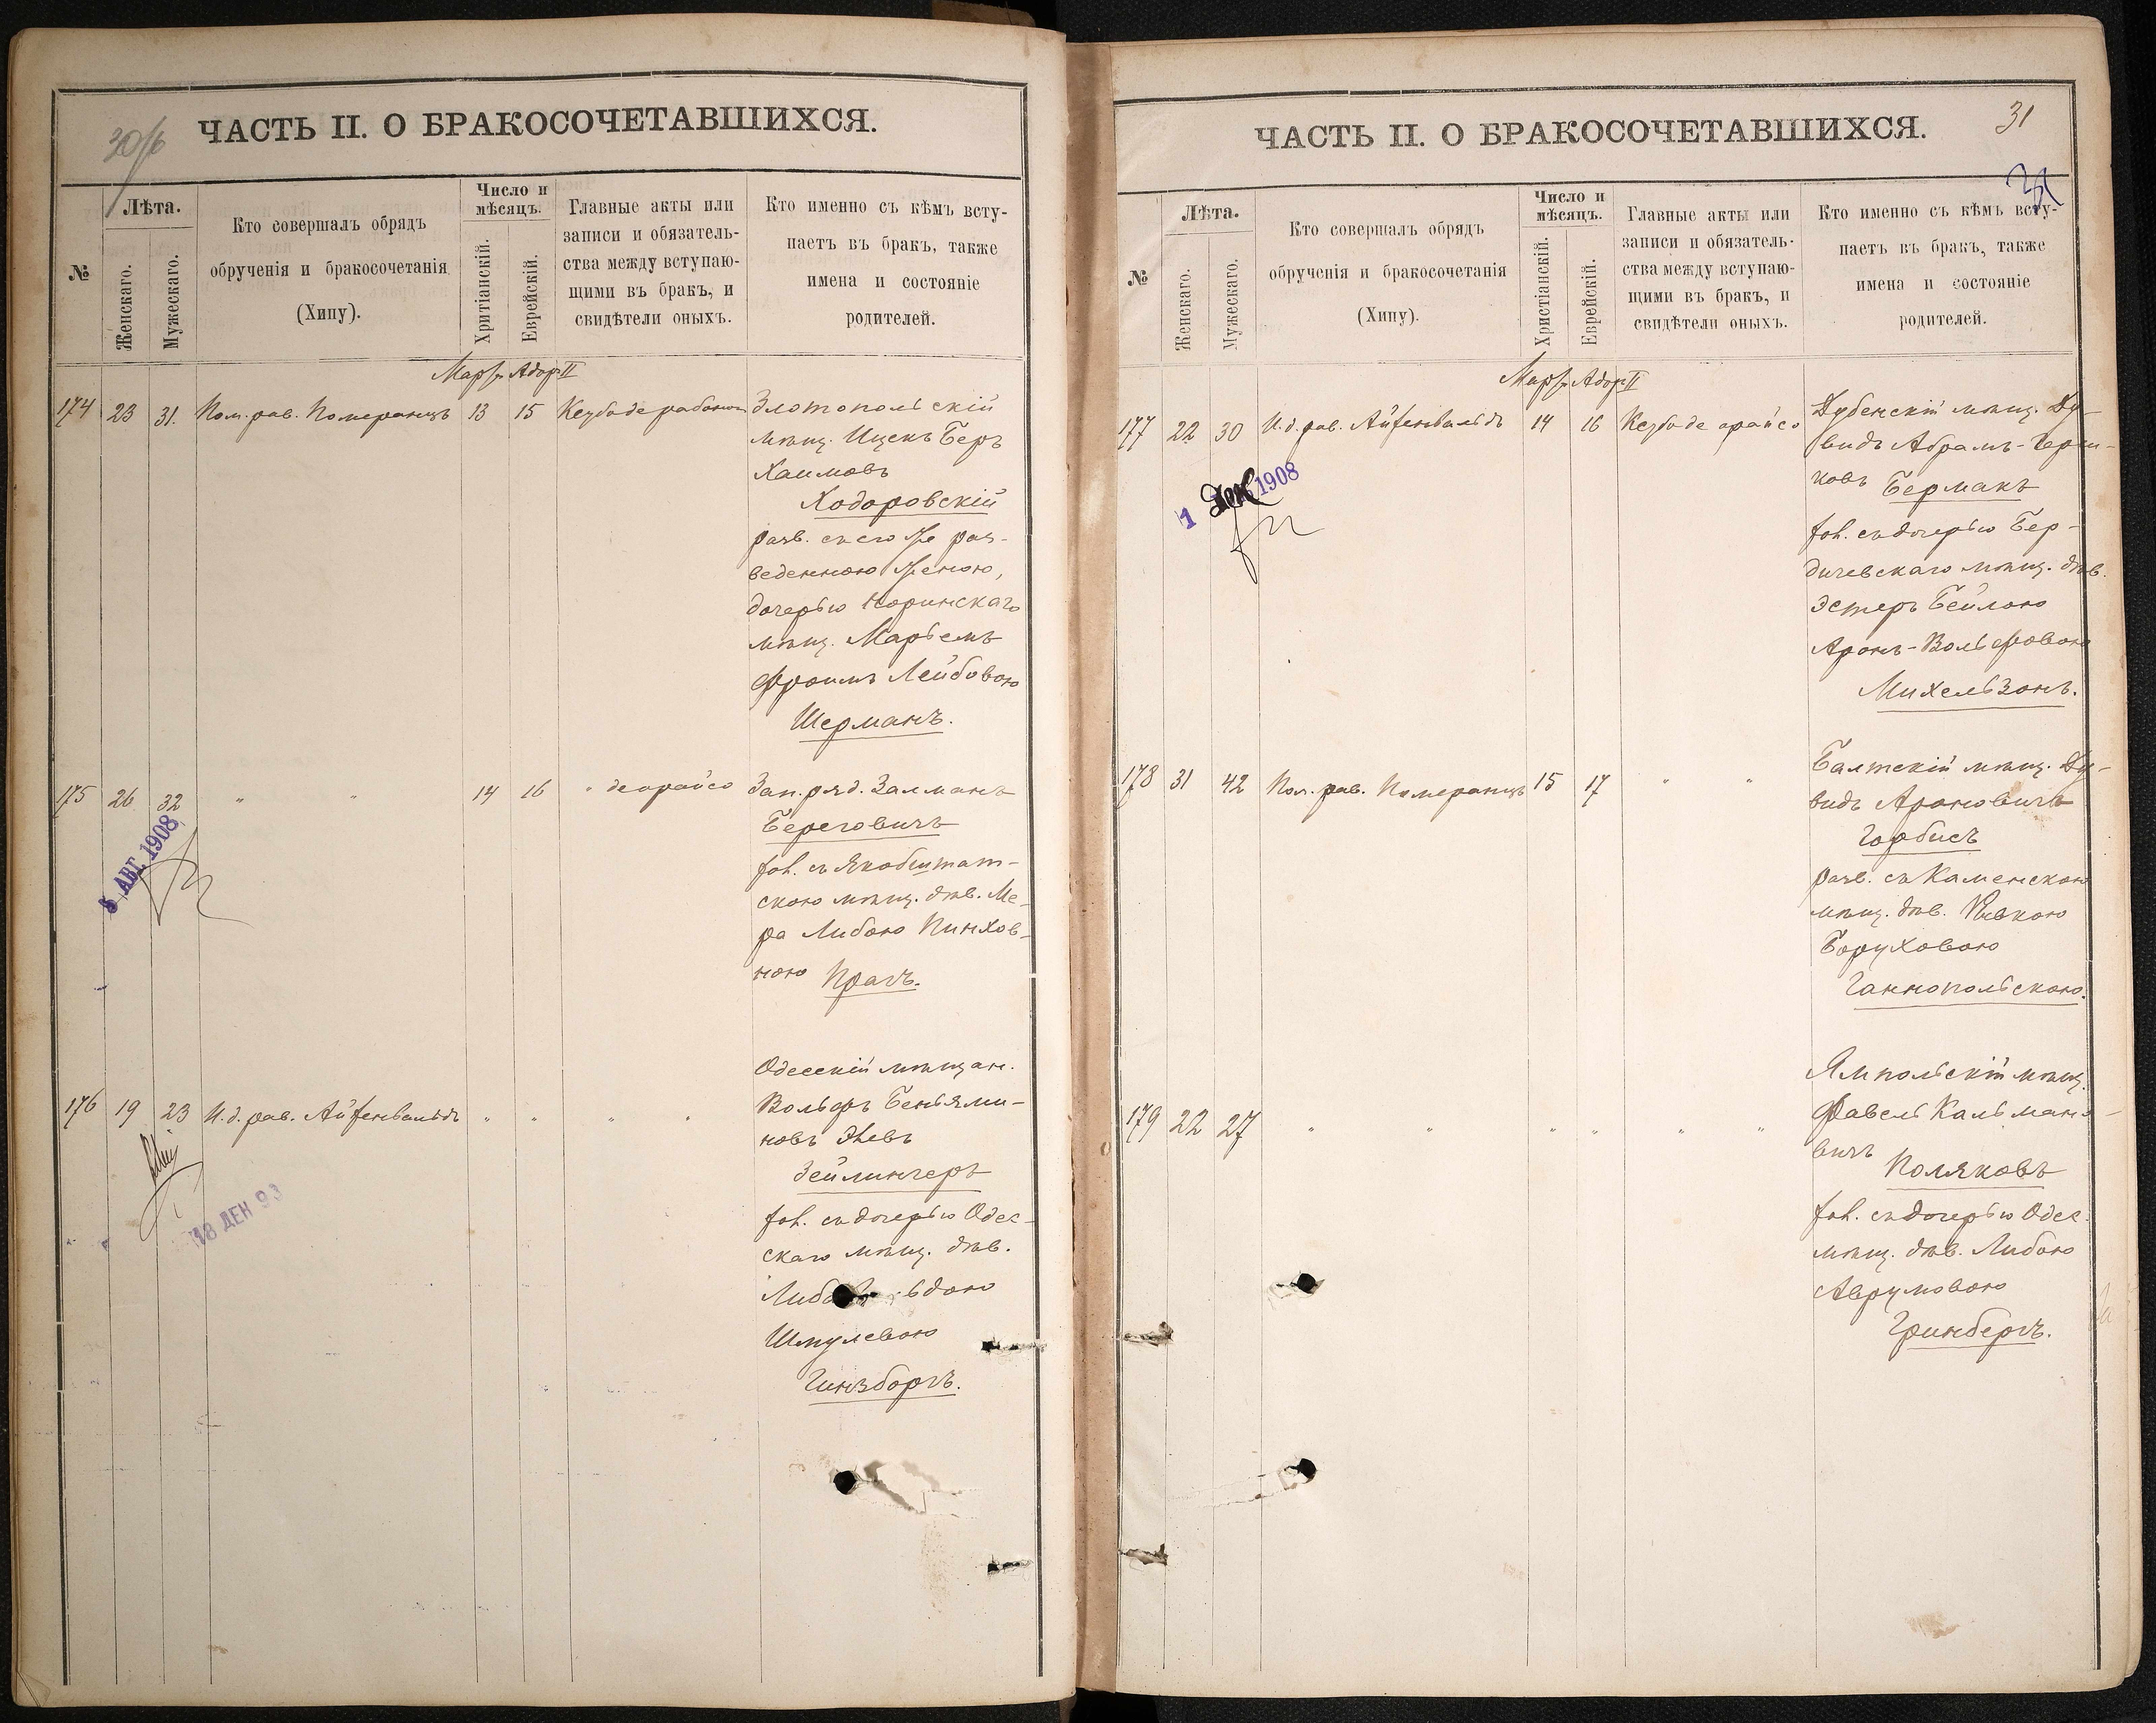 30/б
ЧАСТЬ II. О БРАКОСОЧЕТАВШИХСЯ.
№
Лѣта.
Женскаго.
Мужескаго.
Кто совершалъ обрядъ
обрученія и бракосочетанія
(Хипу).
Число и
мѣсяцъ.
Хритіанскій.
Еврейскій.
Главные акты или
записи и обязатель-
ства между вступаю-
щими въ бракъ, и
свидѣтели оныхъ.
Кто именно съ кѣмъ всту-
паетъ въ бракъ, также
имена и состояніе
родителей.
Мартъ Адоръ II
174 23 31. Пом. рав. Померанцъ 13 15 Кезубо де рабонон Злотопольскій
мѣщ. Ицекъ Беръ
Хаимовъ
Ходоровскій
разв. съ его же раз-
веденною женою,
дочерью Норинскаго
мѣщ. Марьемъ
Фроимъ Лейбовою
Шерманъ.
175 26 32 " " 14 16 " деорайсо Зап. ряд. Залманъ
Береговичъ
хол. съ Якобштат-
скою мѣщ. дѣв. Ме-
ра Либою Пинхов-
ною Прагъ.
5 АВГ. 1908
Одесскій мѣщан.
176 19 23 И. д. рав. Айзенвальдъ " " " " Вольфъ Беньями-
новъ Зеевъ
Зейлингеръ
хол. съ дочерью Одес-
скаго мѣщ. дѣв.
ьдою
Шмулевою
Гинзборгъ.
18 ДЕН 93
31
ЧАСТЬ II. О БРАКОСОЧЕТАВШИХСЯ.
31
№
Лѣта.
Женскаго.
Мужескаго.
Кто совершалъ обрядъ
обрученія и бракосочетанія
(Хипу).
Число и
мѣсяцъ.
Христіанскій.
Еврейскій.
Главные акты или
записи и обязатель-
ства между вступаю-
щими въ бракъ, и
свидѣтели оныхъ.
Кто именно съ кѣмъ всту-
паетъ въ бракъ, также
имена и состояніе
родителей.
Мартъ Адоръ II
177 22 30 И. д. рав. Айзенвальдъ 14 16 Кезубо де орайсо Дубенскій мѣщ. Ду-
видъ Абрамъ-Герш-
ковъ Берманъ
хол. съ дочерью Бер-
дичевскаго мѣщ. дѣв.
Эстеръ Бейлою
Аронъ-Вольфовою
Михельзонъ.
1 Дек 1908
178 31 42 Пом. рав. Померанцъ 15 17 " " Балтскій мѣщ. Ду-
видъ Ароновичъ
Горбисъ
разв. съ Каменскою
мѣщ. дѣв. Ривкою
Боруховою
Ганнопольскою.
Ямпольскій мѣщ.
179 22 27 " " " " " " Фавель Кальмано-
вичъ Поляковъ
хол. съ дочерью Одес.
мѣщ. дѣв. Либою
Аврумовою
Гринбергъ.